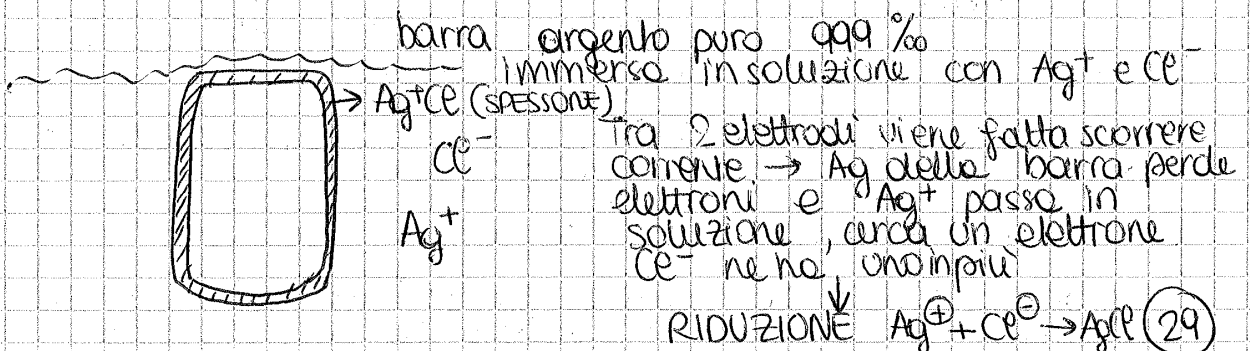 barra argento puro 999 ‰
immersa in soluzione con Ag⁺ e Cl⁻
→ Ag⁺Cl (SPESSORE)
Cl⁻
Ag⁺
Tra 2 elettrodi viene fatta scorrere
corrente → Ag della barra perde
elettroni e Ag⁺ passa in
soluzione, cerca un elettrone
Cl⁻ ne ha uno in più
↓
RIDUZIONE Ag⊕ + Cl⊖ → AgCl (29)